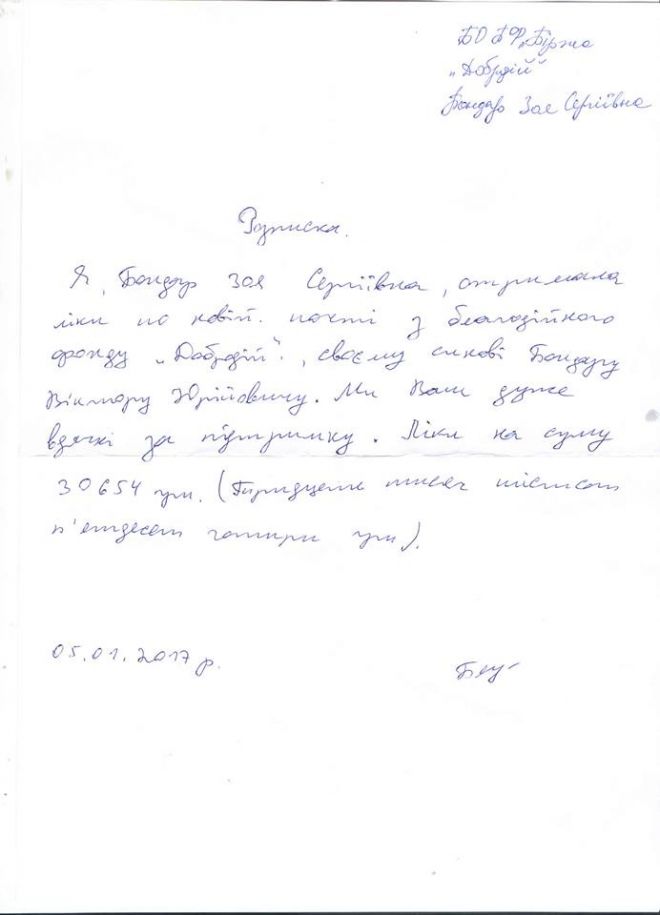 БО БФ „Біржа
„Добродій“
Бондар Зоя Сергіївна
Розписка.
Я, Бондар Зоя Сергіївна, отримала
ліки по новій. почті з благодійного
фонду „Добродій“, своєму синові Бондару
Віктору Юрійовичу. Ми Вам дуже
вдячні за підтримку. Ліки на суму
30654 грн. (Тридцять тисяч шістсот
п'ятдесят чотири грн).
05.01.2017 р.